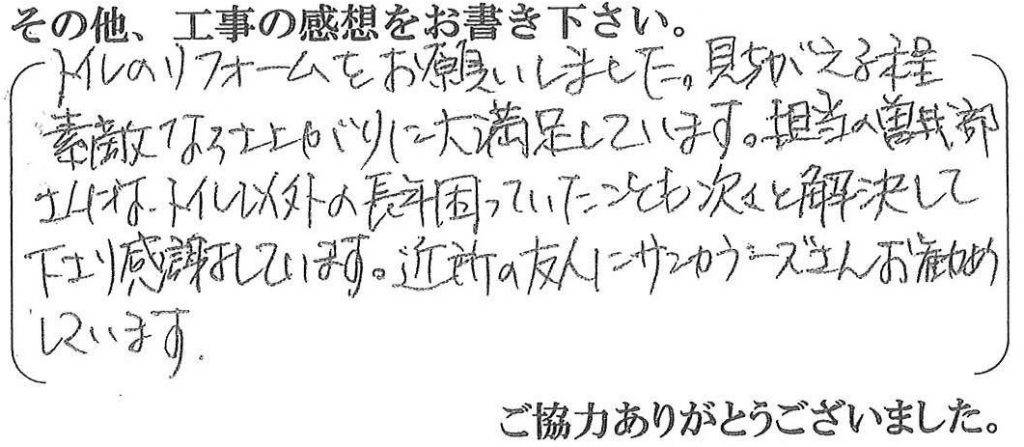 その他、工事の感想をお書き下さい。
トイレのリフォームをお願いしました。見ちがえる程
素敵な仕上がりに大満足しています。担当の曽我部
さんには、トイレ以外の長年困っていたことも次々と解決して
下さり感謝しています。近所の友人にサンカラーズさんお勧め
しています.
ご協力ありがとうございました。